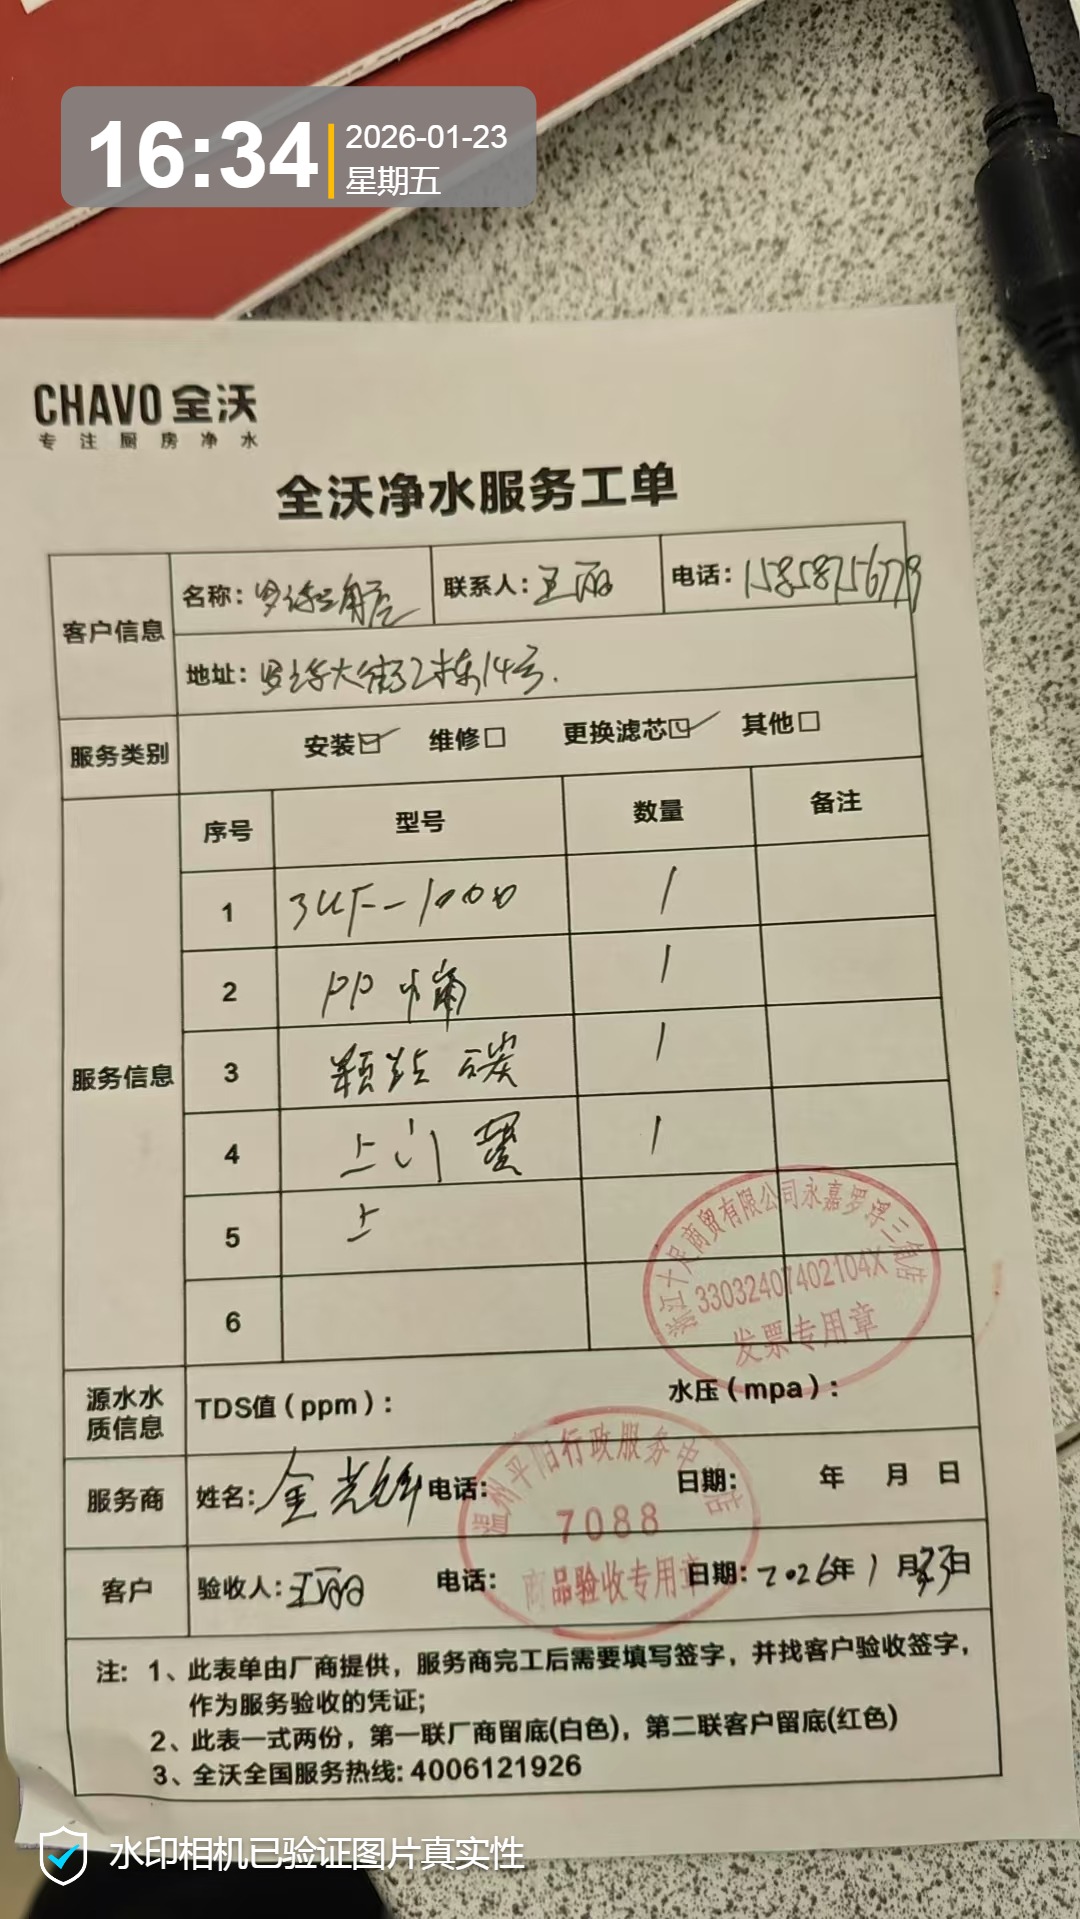 16:34
2026-01-23
星期五
CHAVO 全沃
专注厨房净水
全沃净水服务工单
客户信息
名称：罗浮三角店
联系人：王丽
电话：15858756779
地址：罗浮大街2栋14号.
服务类别
安装☑ 维修□ 更换滤芯☑ 其他□
服务信息
序号 型号 数量 备注
1 3UF-1000 1
2 PP棉 1
3 颗粒碳 1
4 上门费 1
5 上
6
浙江十足商贸有限公司永嘉罗浮三角店
33032407402104X
发票专用章
源水水质信息
TDS值（ppm）： 水压（mpa）：
服务商
姓名：金 电话： 日期： 年 月 日
温州平阳行政服务中心店
7088
商品验收专用章
客户
验收人：王丽 电话： 日期：2026年1月23日
注：1、此表单由厂商提供，服务商完工后需要填写签字，并找客户验收签字，
作为服务验收的凭证；
2、此表一式两份，第一联厂商留底(白色)，第二联客户留底(红色)
3、全沃全国服务热线：4006121926
水印相机已验证图片真实性